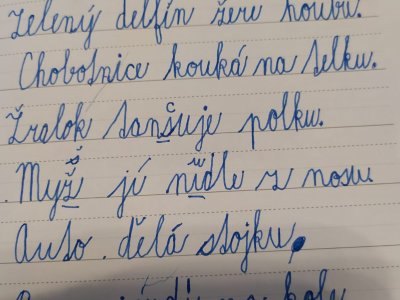 Zelený delfín žere houbu.
Chobotnice kouká na telku.
Žralok tančuje polku.
Myž jí z nosu
Auto dělá stojku.
na kole